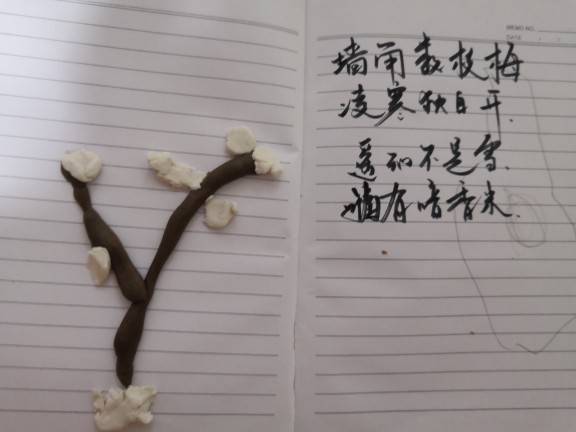 MEMO NO.
DATE
墙角数枝梅
凌寒独自开.
遥知不是雪.
为有暗香来.